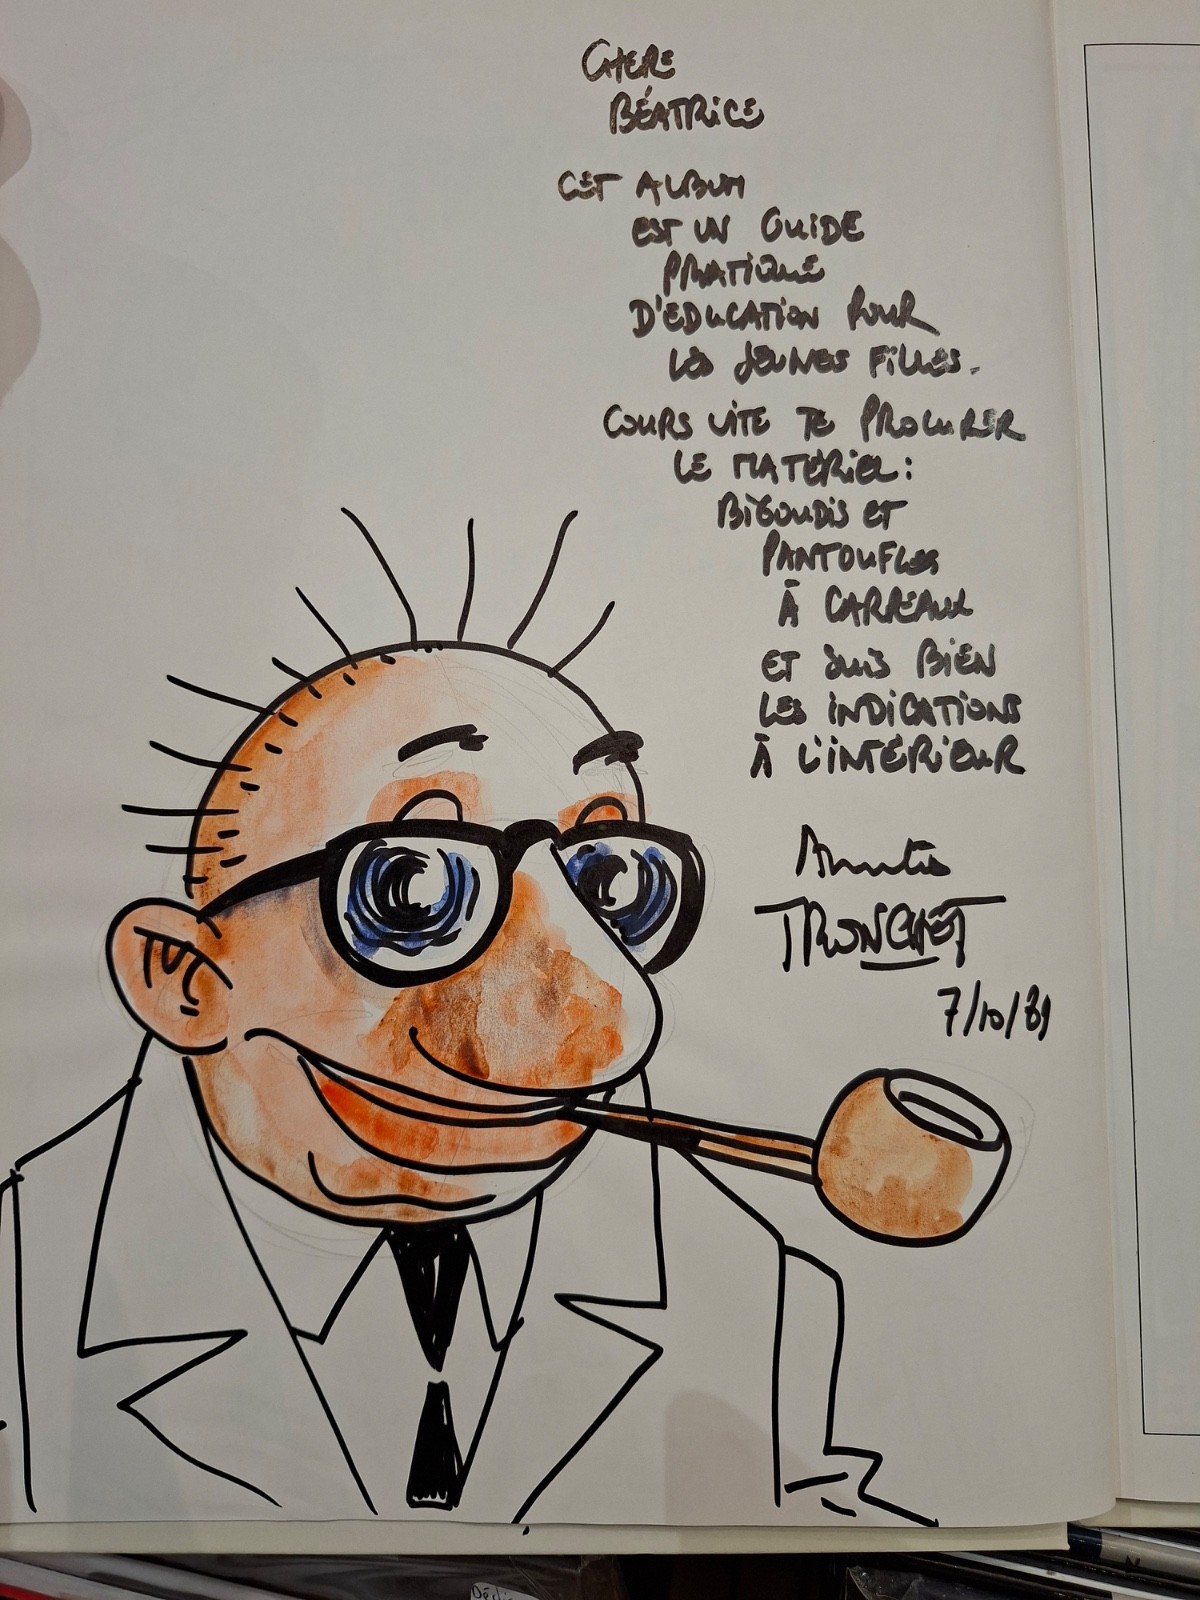 CHERE
BÉATRICE
CET ALBUM
EST UN GUIDE
PRATIQUE
D'EDUCATION POUR
LES JEUNES FILLES.
COURS VITE TE PROCURER
LE MATÉRIEL :
BIGOUDIS ET
PANTOUFLES
À CARREAUX
ET SUIS BIEN
LES INDICATIONS
À L'INTÉRIEUR
Amitiés
TRONCHET
7/10/89